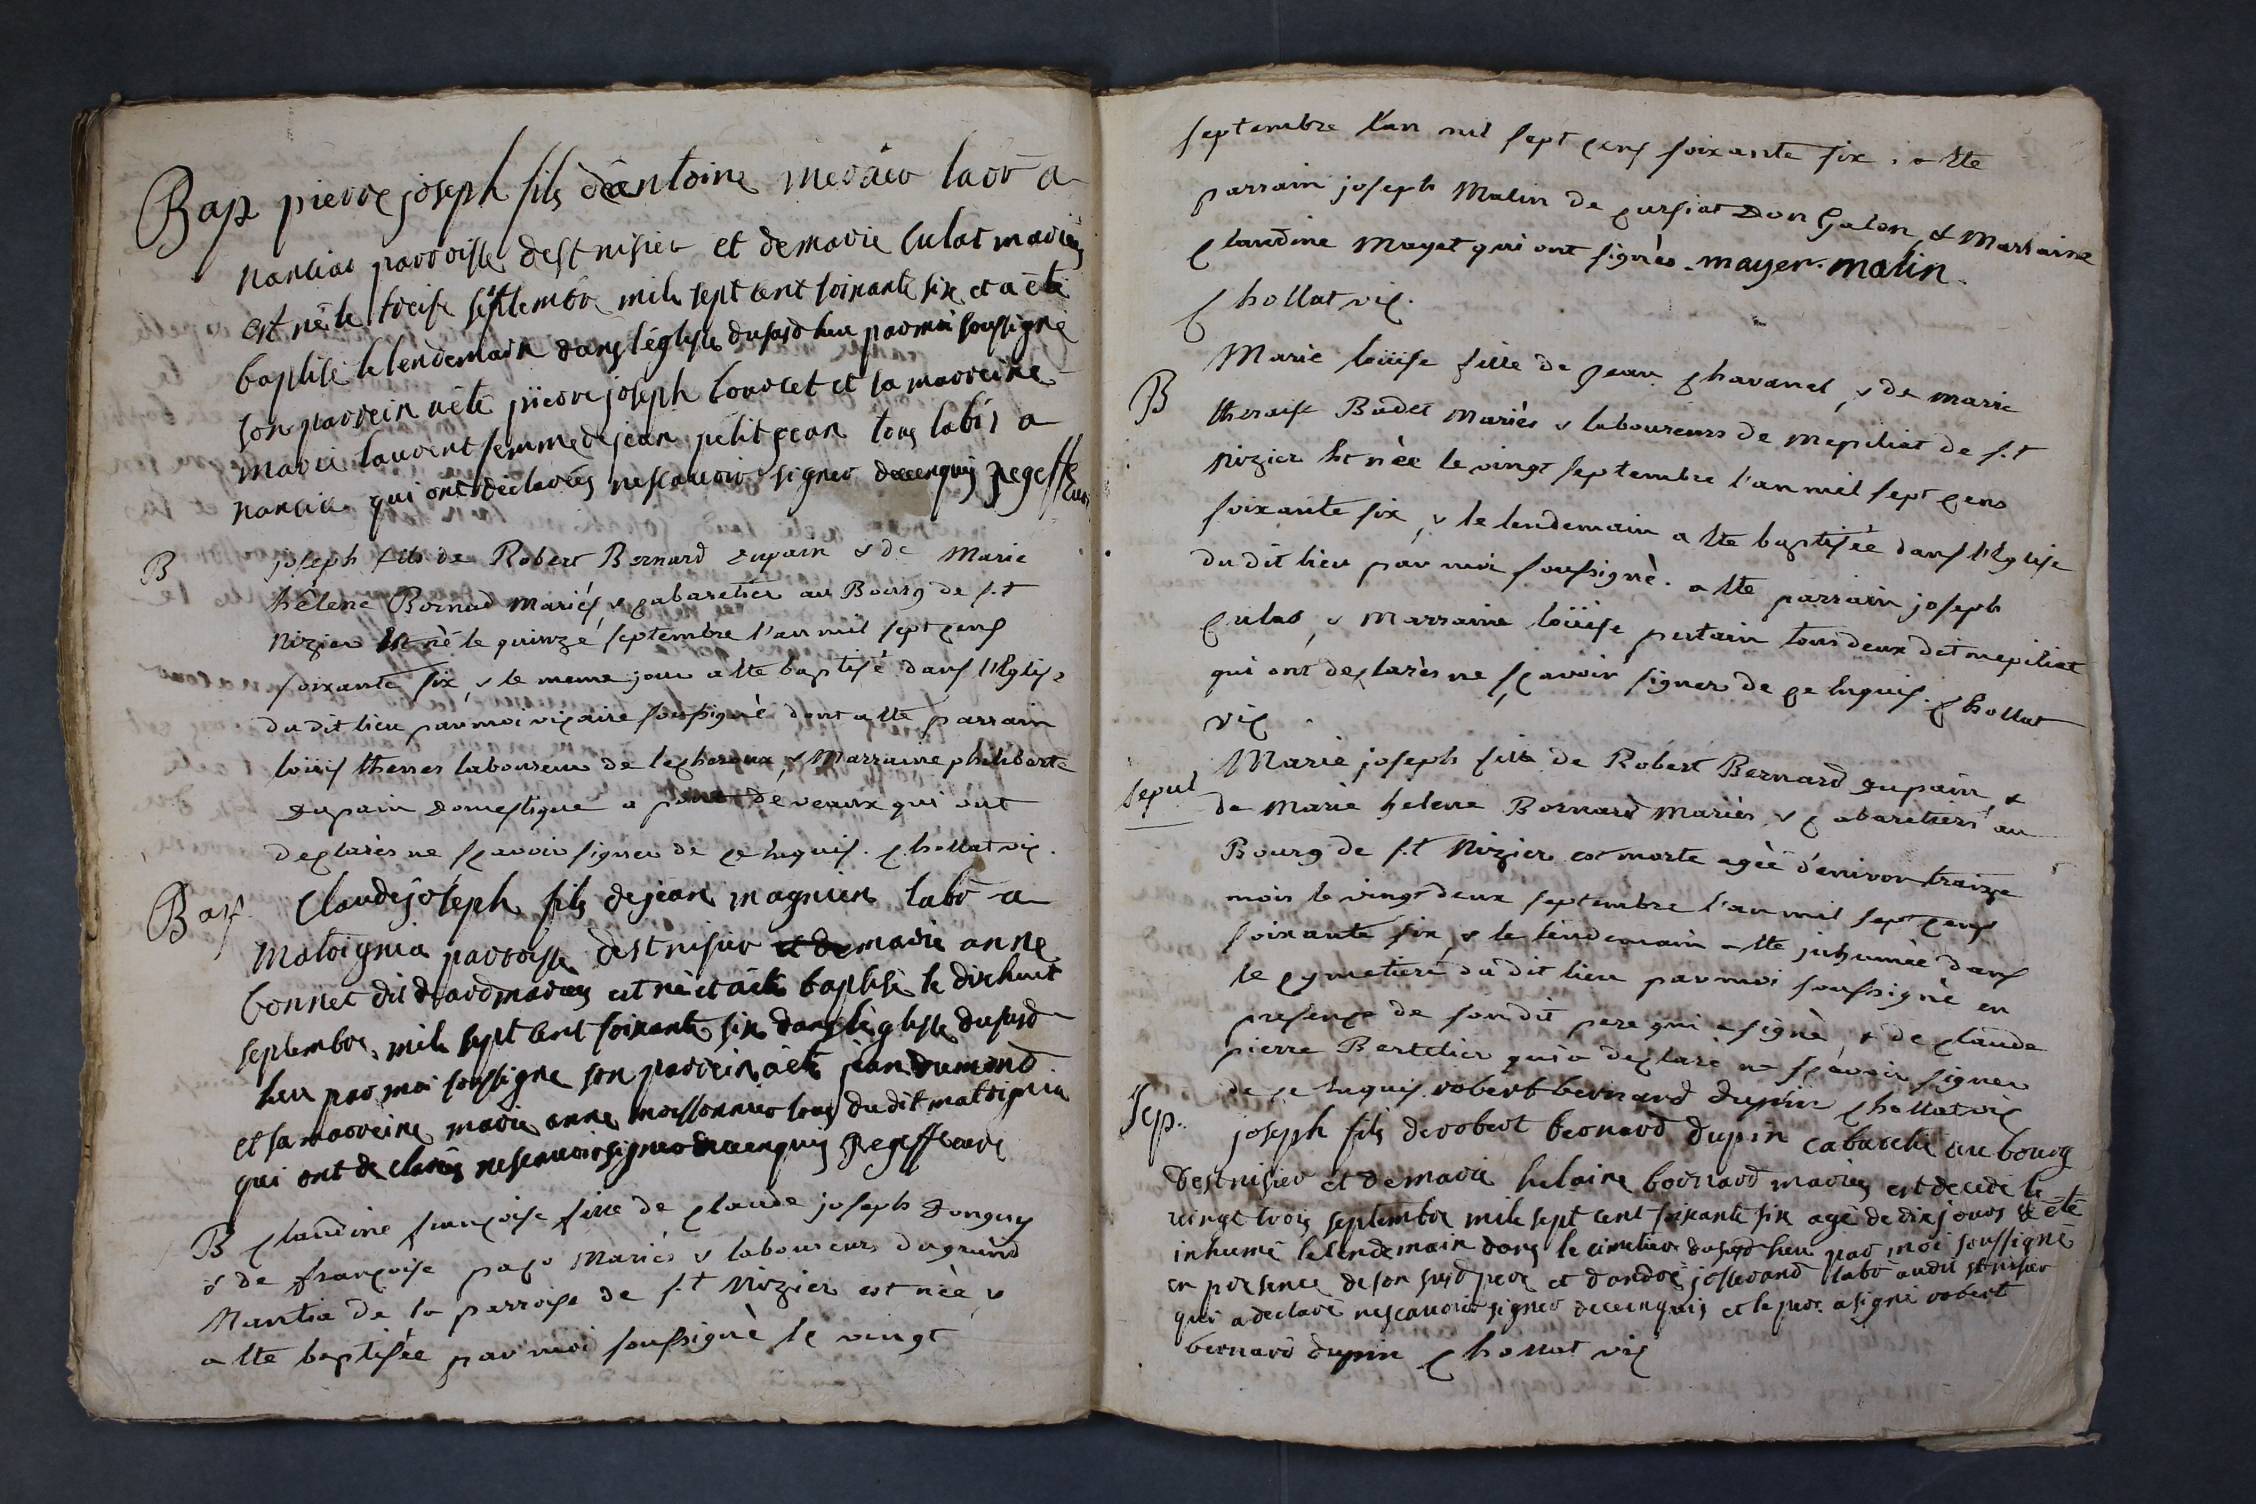 Bap pierre joseph fils dantoine merdier labr a
nancia parroisse de st nisier et de marie culat mariés
est né le treise septembre mile sept cent soixante six et a été
baptisé le lendemain dans léglise dususd lieu par moi soussigné
son parrein a été pierre joseph bourcet et sa marreine
marie laurent femme de jean petitjean tous labrs a
nancia qui ont declarées ne scavoir signer de ce enquis
B joseph fils de Robert Bernard dupain & de Marie
hélene Bornard mariés & cabaretier au Bourg de s.t
Nizier est né le quinze septembre l'an mil sept cens
soixante six, & le meme jour a ete baptisé dans l'Eglise
du dit lieu par moi vicaire soussigné dont a ete parrain
loüis thenes laboureur de lecheroux & Marraine philiberte
dupain domestique a pont de veaux qui ont
declarés ne scavoir signer de ce enquis. chollat vic.
Bap. Claude joseph fils de jean magnien labr a
matoignia parroisse de st nisier marie anne
bonnet dit drard mariés est né et a été baptisé le dix huit
septembre mile sept cent soixante six dans léglise dusud
lieu par moi soussigné son parrein a été jean dumond
et sa marreine marie anne moissonnier tous dudit matoignia
qui ont declarés ne scavoir signer de ce enquis
B claudine françoise fille de claude joseph donguy
& de françoise pago mariés & laboureurs du grand
Nantia de la parroise de s.t Nizier est née &
a ete baptisée par moi soussigné le vingt
septembre l'an mil sept cens soixante six; a ete
parrain joseph Malin de cursiat Don Galon & Marraine
claudine Mayet qui ont signés. mayer. malin.
chollat vic.
B Marie loüise fille de Jean chavanel, & de marie
theraise Badet mariés & laboureurs de mepiliat de s.t
Nizier est née le vingt septembre l'an mil sept cens
soixante six, & le lendemain a ete baptisée dans l'Eglise
du dit lieu par moi soussigné. a ete parrain joseph
culas, & marraine loüise pertain tous deux dit mepiliat
qui ont declarés ne scavoir signer de ce enquis. chollat
vic
sepul Marie joseph fille de Robert Bernard dupain, &
de Marie helene Bornard mariés, & cabaretiers au
Bourg de s.t Nizier est morte agée d'environ traize
mois le vingt deux septembre l'an mil sept cens
soixante six, & le lendemain a ete inhumée dans
le cymetiere du dit lieu par moi soussigné en
presence de son dit pere qui a signé, & de claude
pierre Bertelier qui a declaré ne scavoir signer
de ce enquis robert bernard dupin chollat vic
Sep. joseph fils de robert bernard dupin cabareti au bourg
de st nisier et de marie helaine bornard mariés est decede le
vingt trois septembre mile sept cent soixante six agé de dix jours & été
inhumé le lendemain dans le cimetiere dususd lieu par moi soussigné
en presence de son susd pere et dandré josserand labr audit st nisier
qui a declaré ne scavoir signer de ce enquis et le pere a signé robert
bernard dupin chollat vic